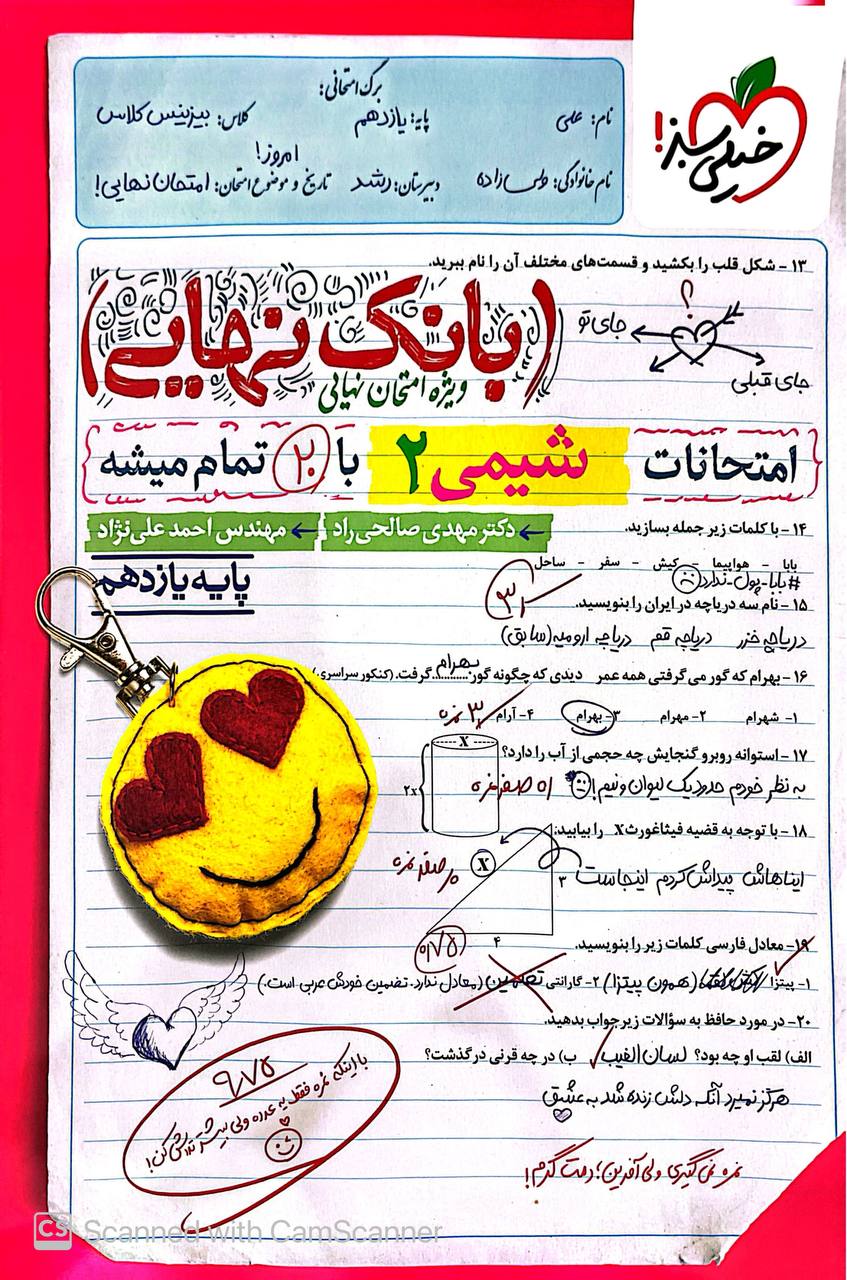 خیلی سبز!
برگ امتحانی:
نام: علی
پایه: یازدهم
کلاس: بیزینس کلاس
نام خانوادگی: ولی زاده
دبیرستان: رشد
تاریخ و موضوع امتحان: امروز! امتحان نهایی!
۱۳- شکل قلب را بکشید و قسمت‌های مختلف آن را نام ببرید.
؟
جای تو
جای قبلی
(بانک نهایی)
ویژه امتحان نهایی
امتحانات شیمی ۲ با ۲۰ تمام میشه
دکتر مهدی صالحی راد
مهندس احمد علی نژاد
پایه یازدهم
۱۴- با کلمات زیر جمله بسازید.
بابا - هواپیما - کیش - سفر - ساحل
#بابا-پول-ندارد
۱۵- نام سه دریاچه در ایران را بنویسید.
۳
دریاچه خزر دریاچه قم دریاچه ارومیه (سابق)
۱۶- بهرام که گور می‌گرفتی همه عمر دیدی که چگونه گور بهرام گرفت. (کنکور سراسری)
۱- شهرام ۲- مهرام ۳- بهرام ۴- آرام
۳ نمره
۱۷- استوانه روبرو گنجایش چه حجمی از آب را دارد؟
x
۲x
به نظر خودم حدود یک لیوان و نیم!
صفر نمره
۱۸- با توجه به قضیه فیثاغورث x را بیابید:
x
۳
۴
ایناهاش پیداش کردم اینجاست
صفر نمره
۱۹- معادل فارسی کلمات زیر را بنویسید.
۰/۷۵
۱- پیتزا (همون پیتزا) ۲- گارانتی تضمین (معادل ندارد. تضمین خودش عربی است.)
۲۰- در مورد حافظ به سؤالات زیر جواب بدهید.
الف) لقب او چه بود؟ لسان الغیب ب) در چه قرنی درگذشت؟
هرگز نمیرد آنکه دلش زنده شد به عشق
۹/۷۵
با اینکه نمره فقط یه عدده ولی بیشتر تلاش کن!
نمره نمی‌گیری ولی آفرین؛ دمت گرم!
CS Scanned with CamScanner